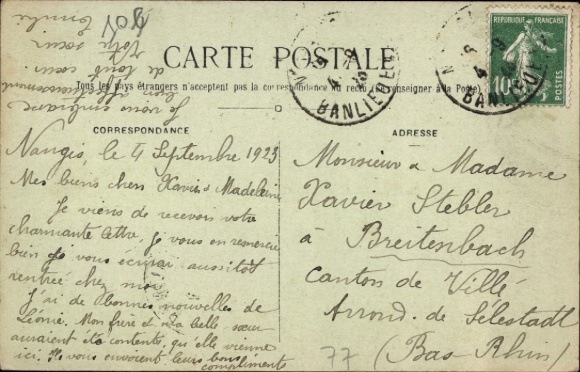 CARTE POSTALE
Tous les pays étrangers n'acceptent pas la correspondance au recto (Se renseigner à la Poste)
CORRESPONDANCE
Nangis, le 4 Septembre 1923
Mes biens chers Xavier & Madeleine
Je viens de recevoir votre
charmante lettre, je vous en remercie
bien je vous écrirai aussitôt
rentrée chez moi
J'ai de bonnes nouvelles de
Léonie. Mon frère et ma belle sœur
auraient été contents, qu'elle vienne
ici. Ils vous envoient leurs bons
compliments
Je vous embrasse
bien affectueusement
de tout cœur
Votre sœur
ADRESSE
Monsieur & Madame
Xavier Stebler
à Breitenbach
Canton de Villé
Arrond. de Sélestadt
(Bas Rhin)
77
REPUBLIQUE FRANÇAISE
10c
POSTES
BANLIEUE
BANLIEUE